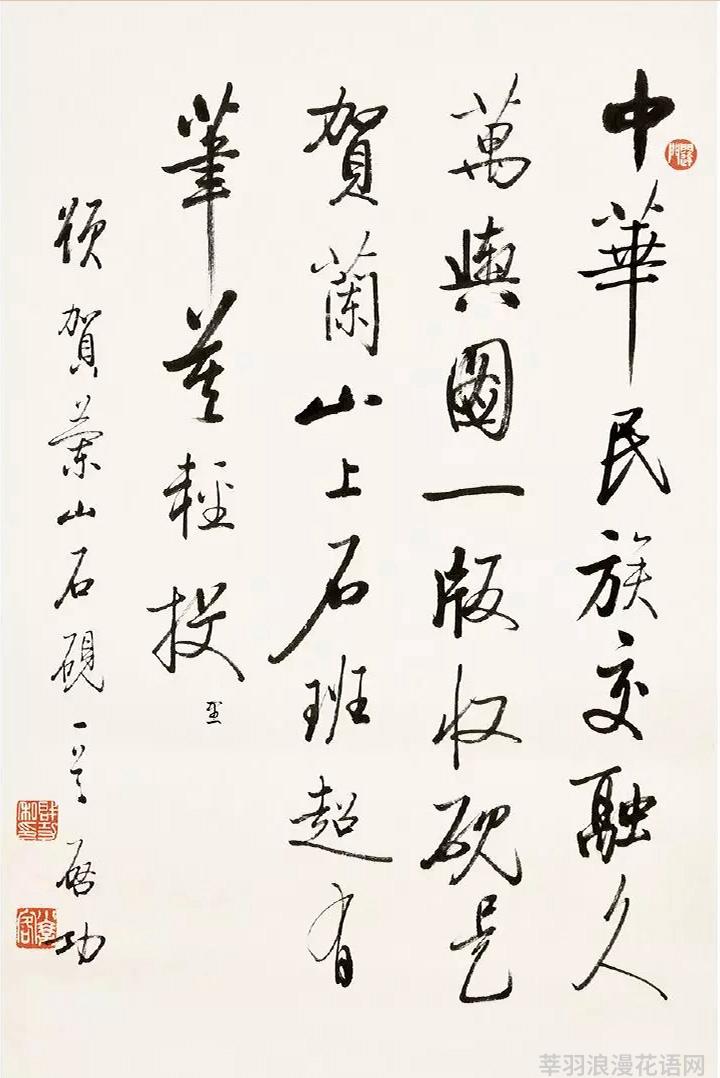 中華民族交融久
萬輿圖一版收硯是
賀蘭山上石班超有
筆莫輕投 里
賀蘭山石硯一首 啓功
莘羽浪漫花语网